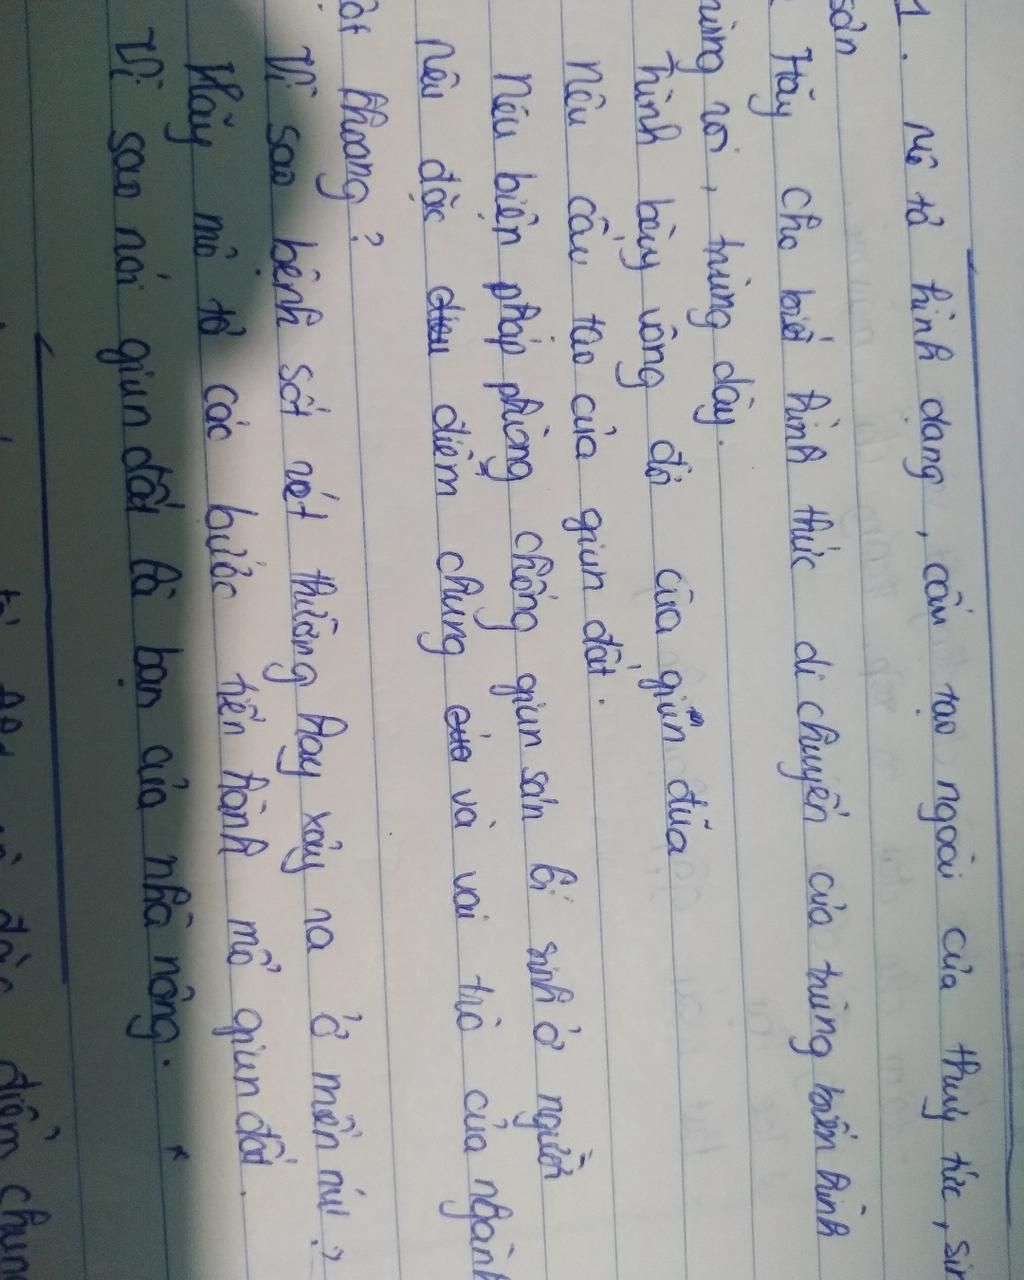 1. Mô tả hình dạng, cấu tạo ngoài của thuỷ tức,
sản
Hãy cho biết hình thức di chuyển của trùng biến hình
trùng roi, trùng dày.
Trình bày vòng đời của giun đũa
Nêu cấu tạo của giun đất.
Nêu biện pháp phòng chống giun sán kí sinh ở người
Nêu đặc điểm chung và vai trò của ngành
ruột khoang?
Vì sao bệnh sốt rét thường hay xảy ra ở miền núi?
Hãy mô tả các bước tiến hành mổ giun đất.
Vì sao nói giun đất là bạn của nhà nông.
điểm chung